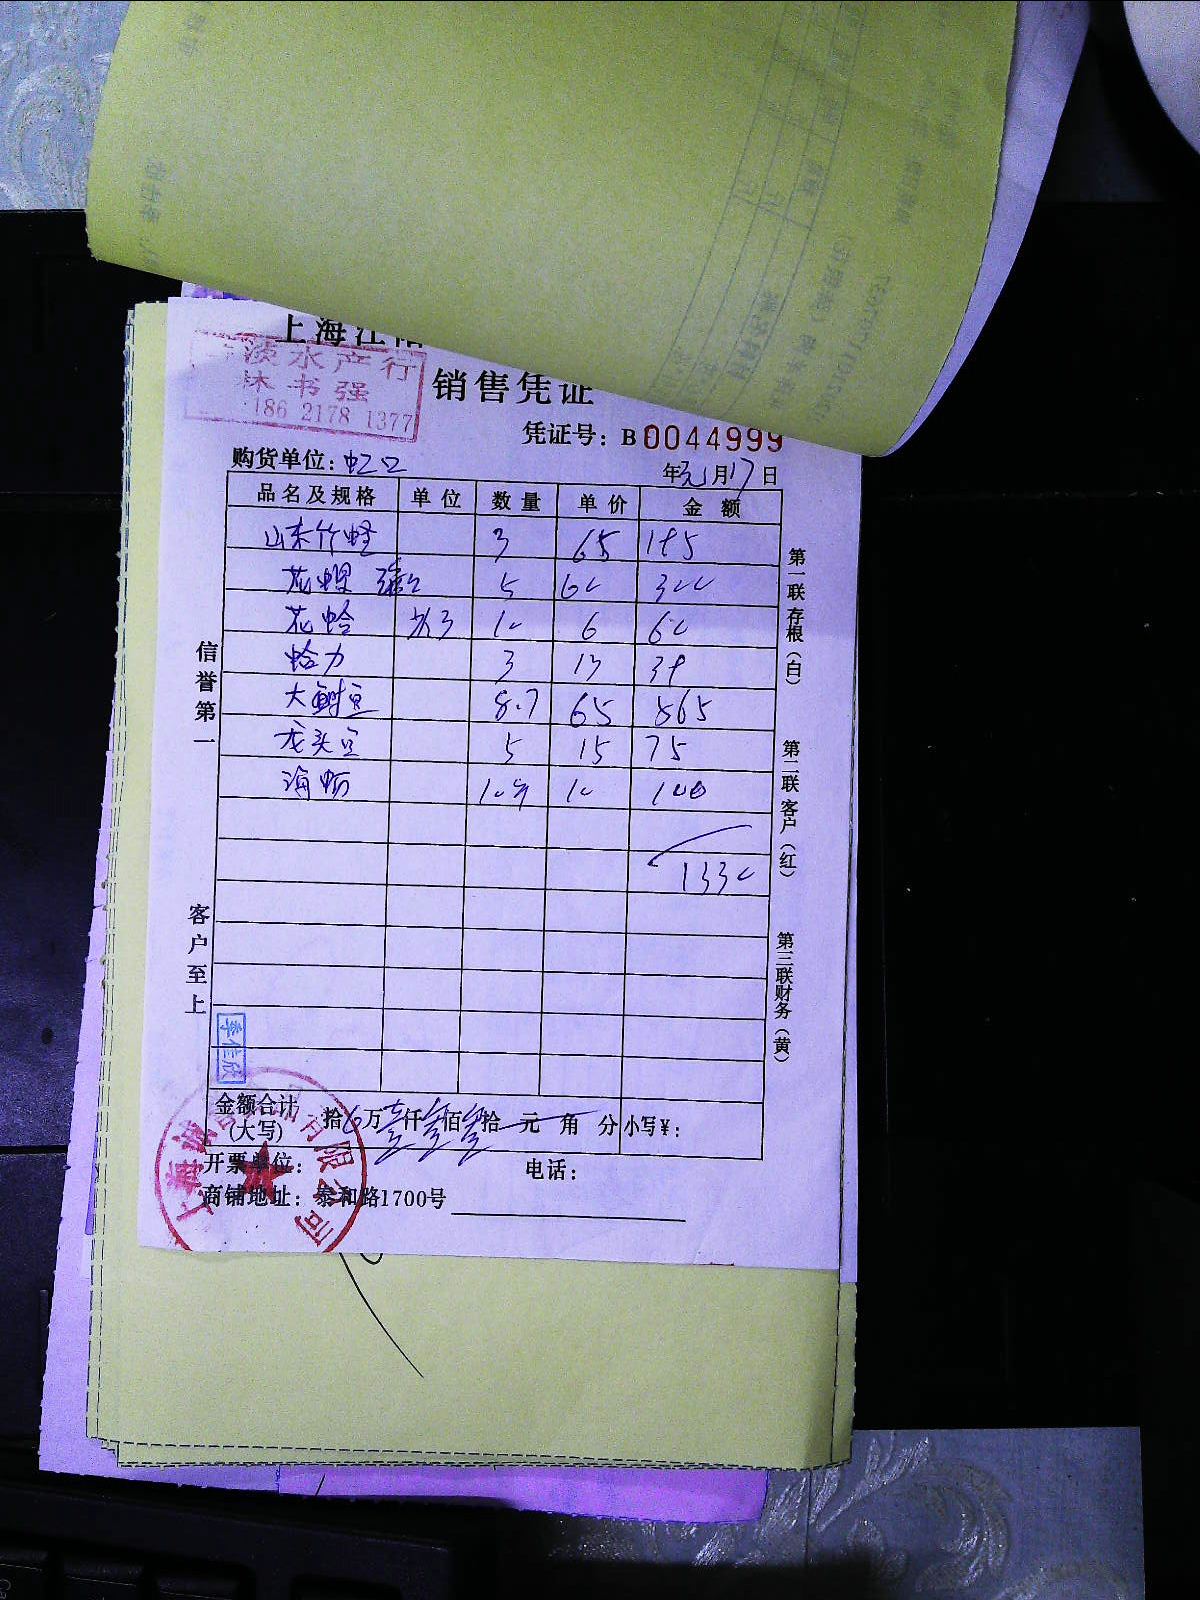 淡水产行
林书强
186 2178 1377
销售凭证
凭证号：B 0044999
购货单位：虹口
年元月17日
品名及规格 单位 数量 单价 金额
山东竹蛏 3 65 195
花螺 5 60 300
花蛤 10 6 60
蛤力 3 13 39
大鲥鱼 8.7 65 565
龙头鱼 5 15 75
海蛎 10 10 100
1330
信誉第一
客户至上
第一联存根（白）
第二联客户（红）
第三联财务（黄）
季佳欣
金额合计（大写） 拾 万壹仟叁佰叁拾 元 角 分 小写¥：
开票单位： 电话：
商铺地址：泰和路1700号
有限公司